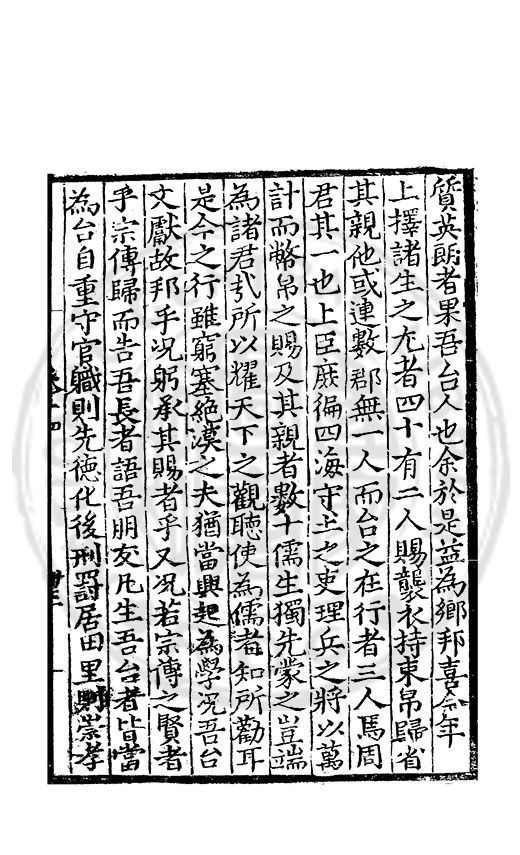 質英朗者果吾台人也余於是益為鄉邦喜今年
上擇諸生之尤者四十有二人賜襲衣持束帛歸省
其親他或連數郡無一人而台之在行者三人焉周
君其一也上臣庶徧四海守土之吏理兵之將以萬
計而幣帛之賜及其親者數十儒生獨先蒙之豈端
為諸君哉所以耀天下之觀聽使為儒者知所勸耳
是今之行雖窮塞絶漠之夫猶當興起為學況吾台
文獻故邦乎况躬承其賜者乎又况若宗傳之賢者
乎宗傳歸而告吾長者語吾朋友凡生吾台者皆當
為台自重守官職則先德化後刑罰居田里則崇孝